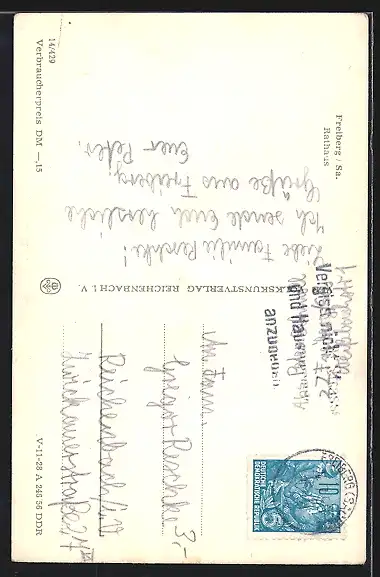 Freiberg / Sa.
Rathaus
Liebe Familie Reschke!
Ich sende Euch herzliche
Grüße aus Freiberg.
Euer Peter.
14/429
Verbraucherpreis DM –,15
VOLKSKUNSTVERLAG REICHENBACH I. V.
Vergiss nicht
und Hausnummer
anzugeben
DEUTSCHE
DEMOKRATISCHE REPUBLIK
10
An Fam.
Gregor Reschke
Reichenbach i. V.
Zwickauerstraße
3,-
V-11-28 A 245 56 DDR